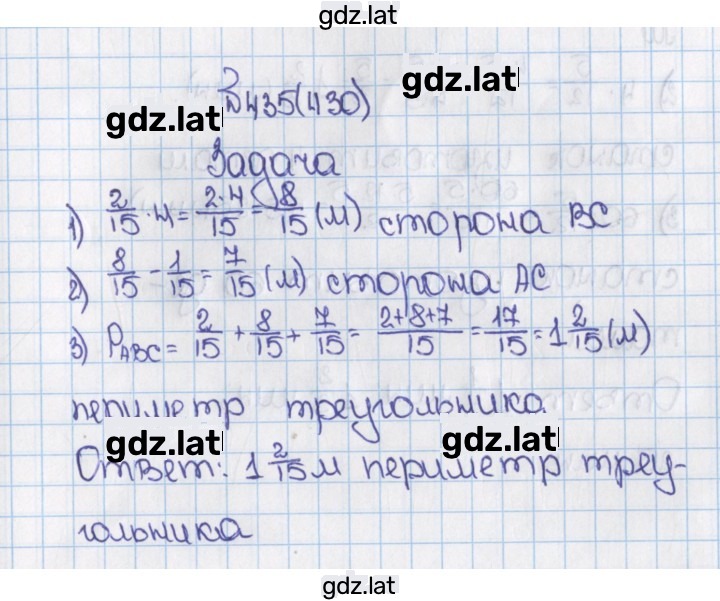 gdz.lat
№435(430)
gdz.lat
gdz.lat
Задача
1) 2/15 · 4 = 2·4/15 = 8/15 (м) сторона BC
2) 8/15 - 1/15 = 7/15 (м) сторона AC
3) P_ABC = 2/15 + 8/15 + 7/15 = 2+8+7/15 = 17/15 = 1 2/15 (м)
периметр треугольника.
gdz.lat
gdz.lat
Ответ: 1 2/15 м периметр треу-
гольника
gdz.lat